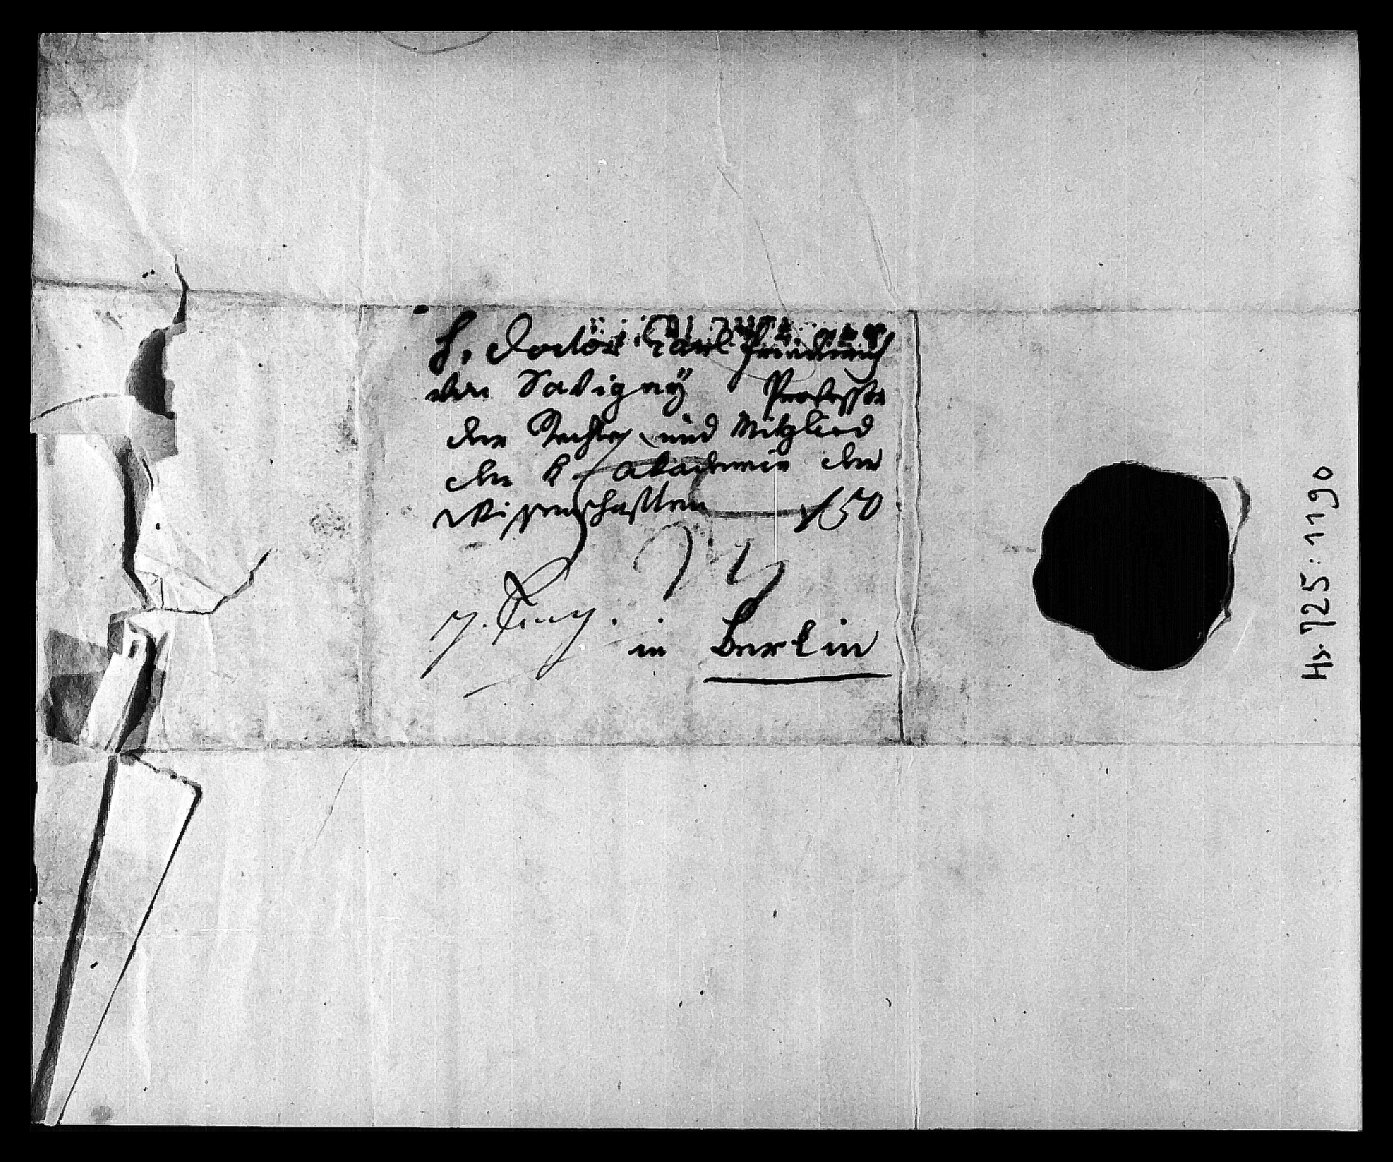 H. Doctor Carl Friedrich
von Savigny Professor
der Rechte und Mitglied
der K. Akademie der
Wissenschaften
in Berlin
Hs. 725: 1190